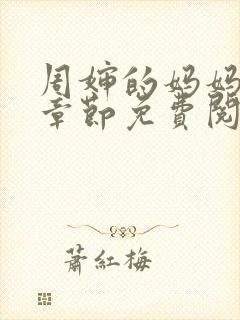 周婶的妈妈
章节免费阅
萧红梅